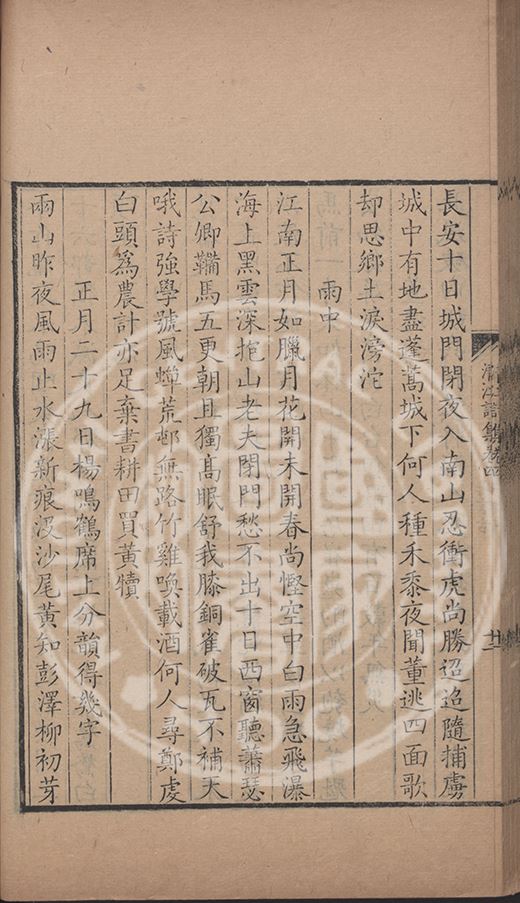 長安十日城門閉夜入南山忍衝虎尚勝迢迢隨捕虜
城中有地盡蓬蒿城下何人種禾黍夜聞董逃四面歌
却思鄉土淚滂沱
雨中
江南正月如臘月花開未開春尚慳空中白雨急飛瀑
海上黑雲深抱山老夫閉門愁不出十日西窗聽蕭瑟
公卿鞴馬五更朝且獨高眠舒我膝銅雀破瓦不補天
哦詩強學號風蟬荒邨無路竹雞喚載酒何人尋鄭虔
白頭爲農計亦足棄書耕田買黃犢
正月二十九日楊鳴鶴席上分韻得幾字
兩山昨夜風雨止水漲新痕沒沙尾黃知彭澤柳初芽
清江詩集卷四